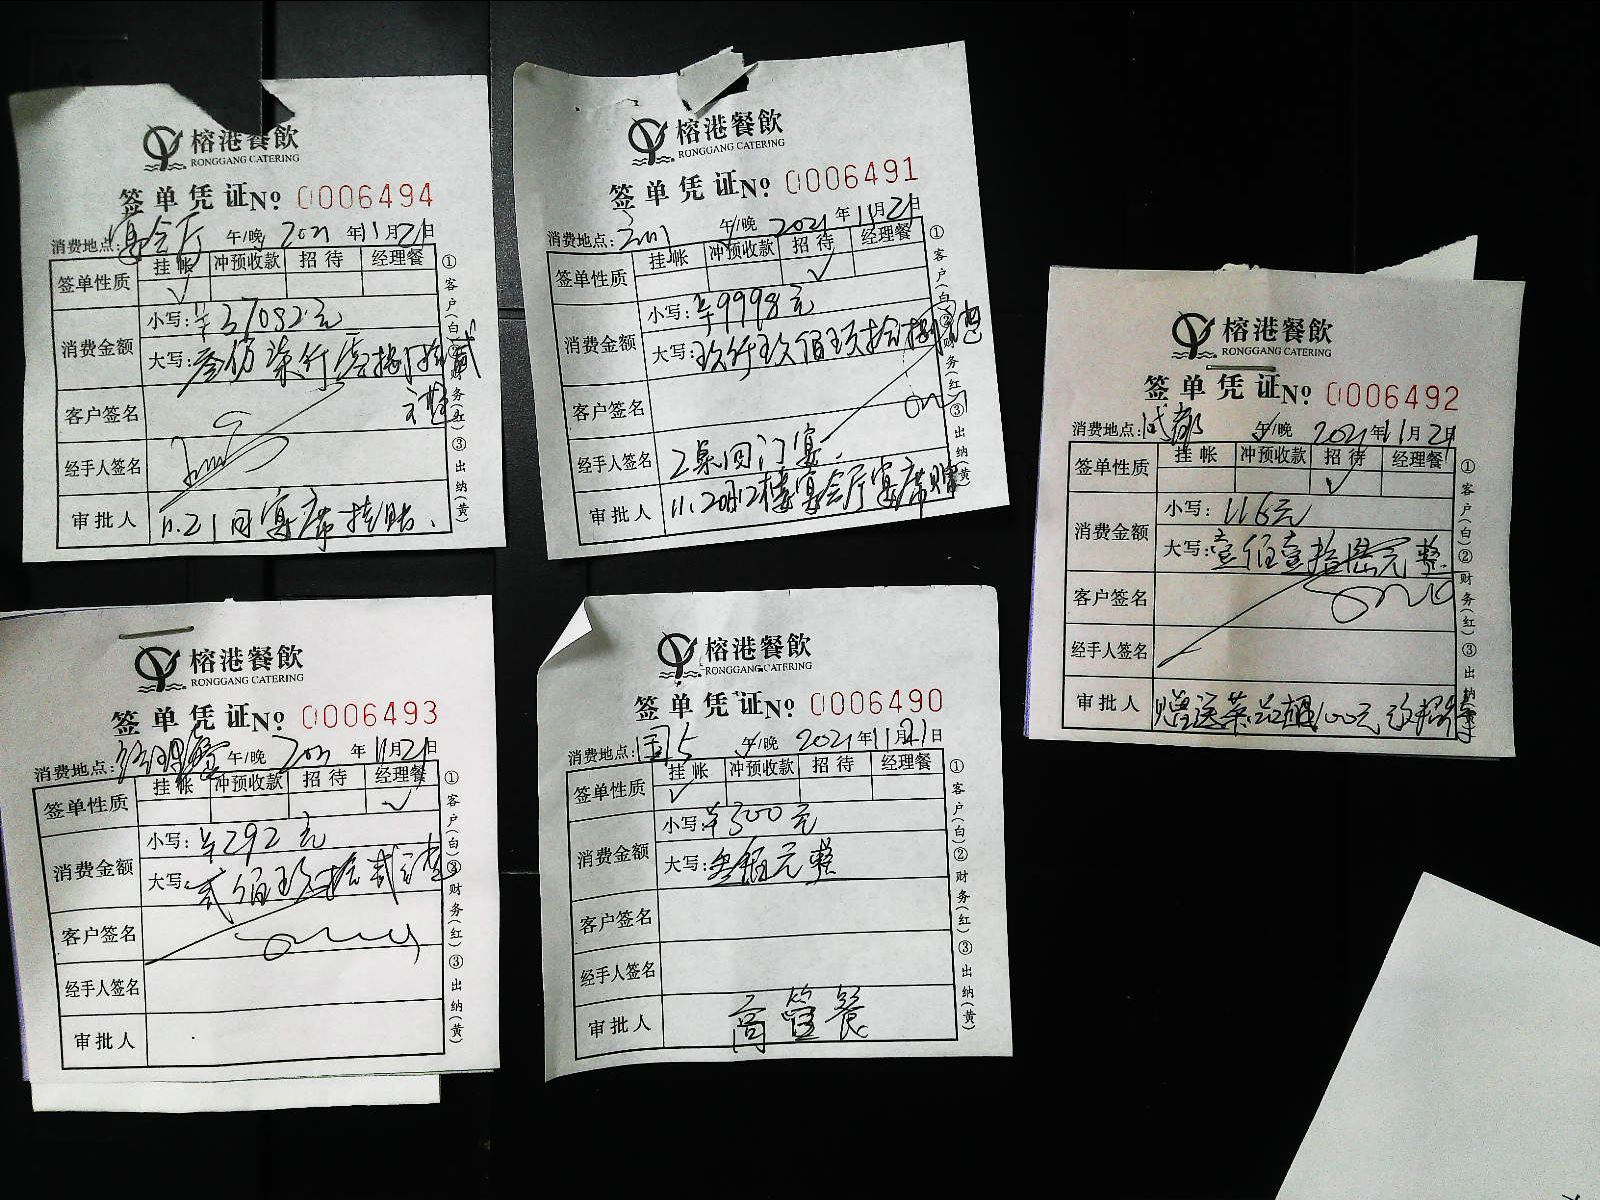 榕港餐飲
RONGGANG CATERING
签单凭证No 0006494
消费地点:宴会厅 午/晚 2021年11月21日
签单性质 挂帐 冲预收款 招待 经理餐
✓
消费金额 小写:¥37082元
大写:叁仟柒仟零拾捌拾贰元整
客户签名
经手人签名
审批人 11.21日宴席挂账.
①客户(白)②财务(红)③出纳(黄)
榕港餐飲
RONGGANG CATERING
签单凭证No 0006491
消费地点: 午/晚 2021年11月21日
签单性质 挂帐 冲预收款 招待 经理餐
✓
消费金额 小写:¥9998元
大写:玖仟玖佰玖拾捌元整
客户签名
经手人签名 2桌回门宴.
审批人 11.20日2楼宴会厅宴席赠
①客户(白)②财务(红)③出纳(黄)
榕港餐飲
RONGGANG CATERING
签单凭证No 0006492
消费地点:成都 午/晚 2021年11月21日
签单性质 挂帐 冲预收款 招待 经理餐
✓
消费金额 小写:116元
大写:壹佰壹拾陆元整
客户签名
经手人签名
审批人 赠送菜品超100元改招待
①客户(白)②财务(红)③出纳(黄)
榕港餐飲
RONGGANG CATERING
签单凭证No 0006493
消费地点:经理餐 午/晚 2021年11月21日
签单性质 挂帐 冲预收款 招待 经理餐
✓
消费金额 小写:¥292元
大写:贰佰玖拾贰元整
客户签名
经手人签名
审批人
①客户(白)②财务(红)③出纳(黄)
榕港餐飲
RONGGANG CATERING
签单凭证No 0006490
消费地点:国5 午/晚 2021年11月21日
签单性质 挂帐 冲预收款 招待 经理餐
✓
消费金额 小写:¥300元
大写:叁佰元整
客户签名
经手人签名
审批人 高管餐
①客户(白)②财务(红)③出纳(黄)